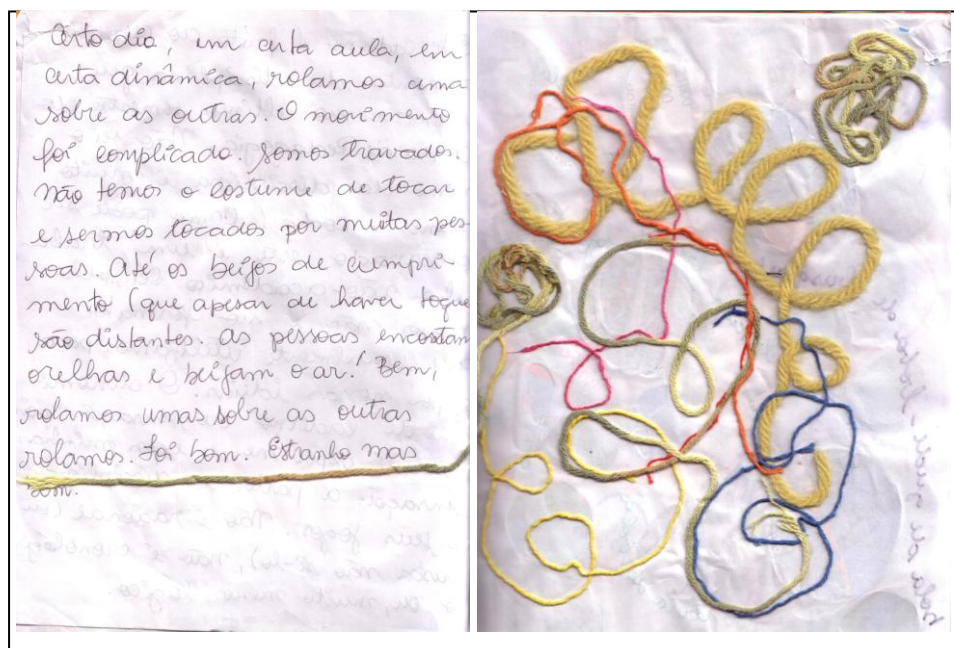 Certo dia, em certa aula, em
certa dinâmica, rolamos uma
sobre as outras. O movimento
foi complicado. Somos travados.
não temos o costume de tocar
e sermos tocados por muitas pes-
soas. Até os beijos de cumpri-
mento (que apesar de haver toque
são distantes. As pessoas encostam
orelhas e beijam o ar! Bem,
rolamos umas sobre as outras
rolamos. Foi bom. Estranho mas
bom.